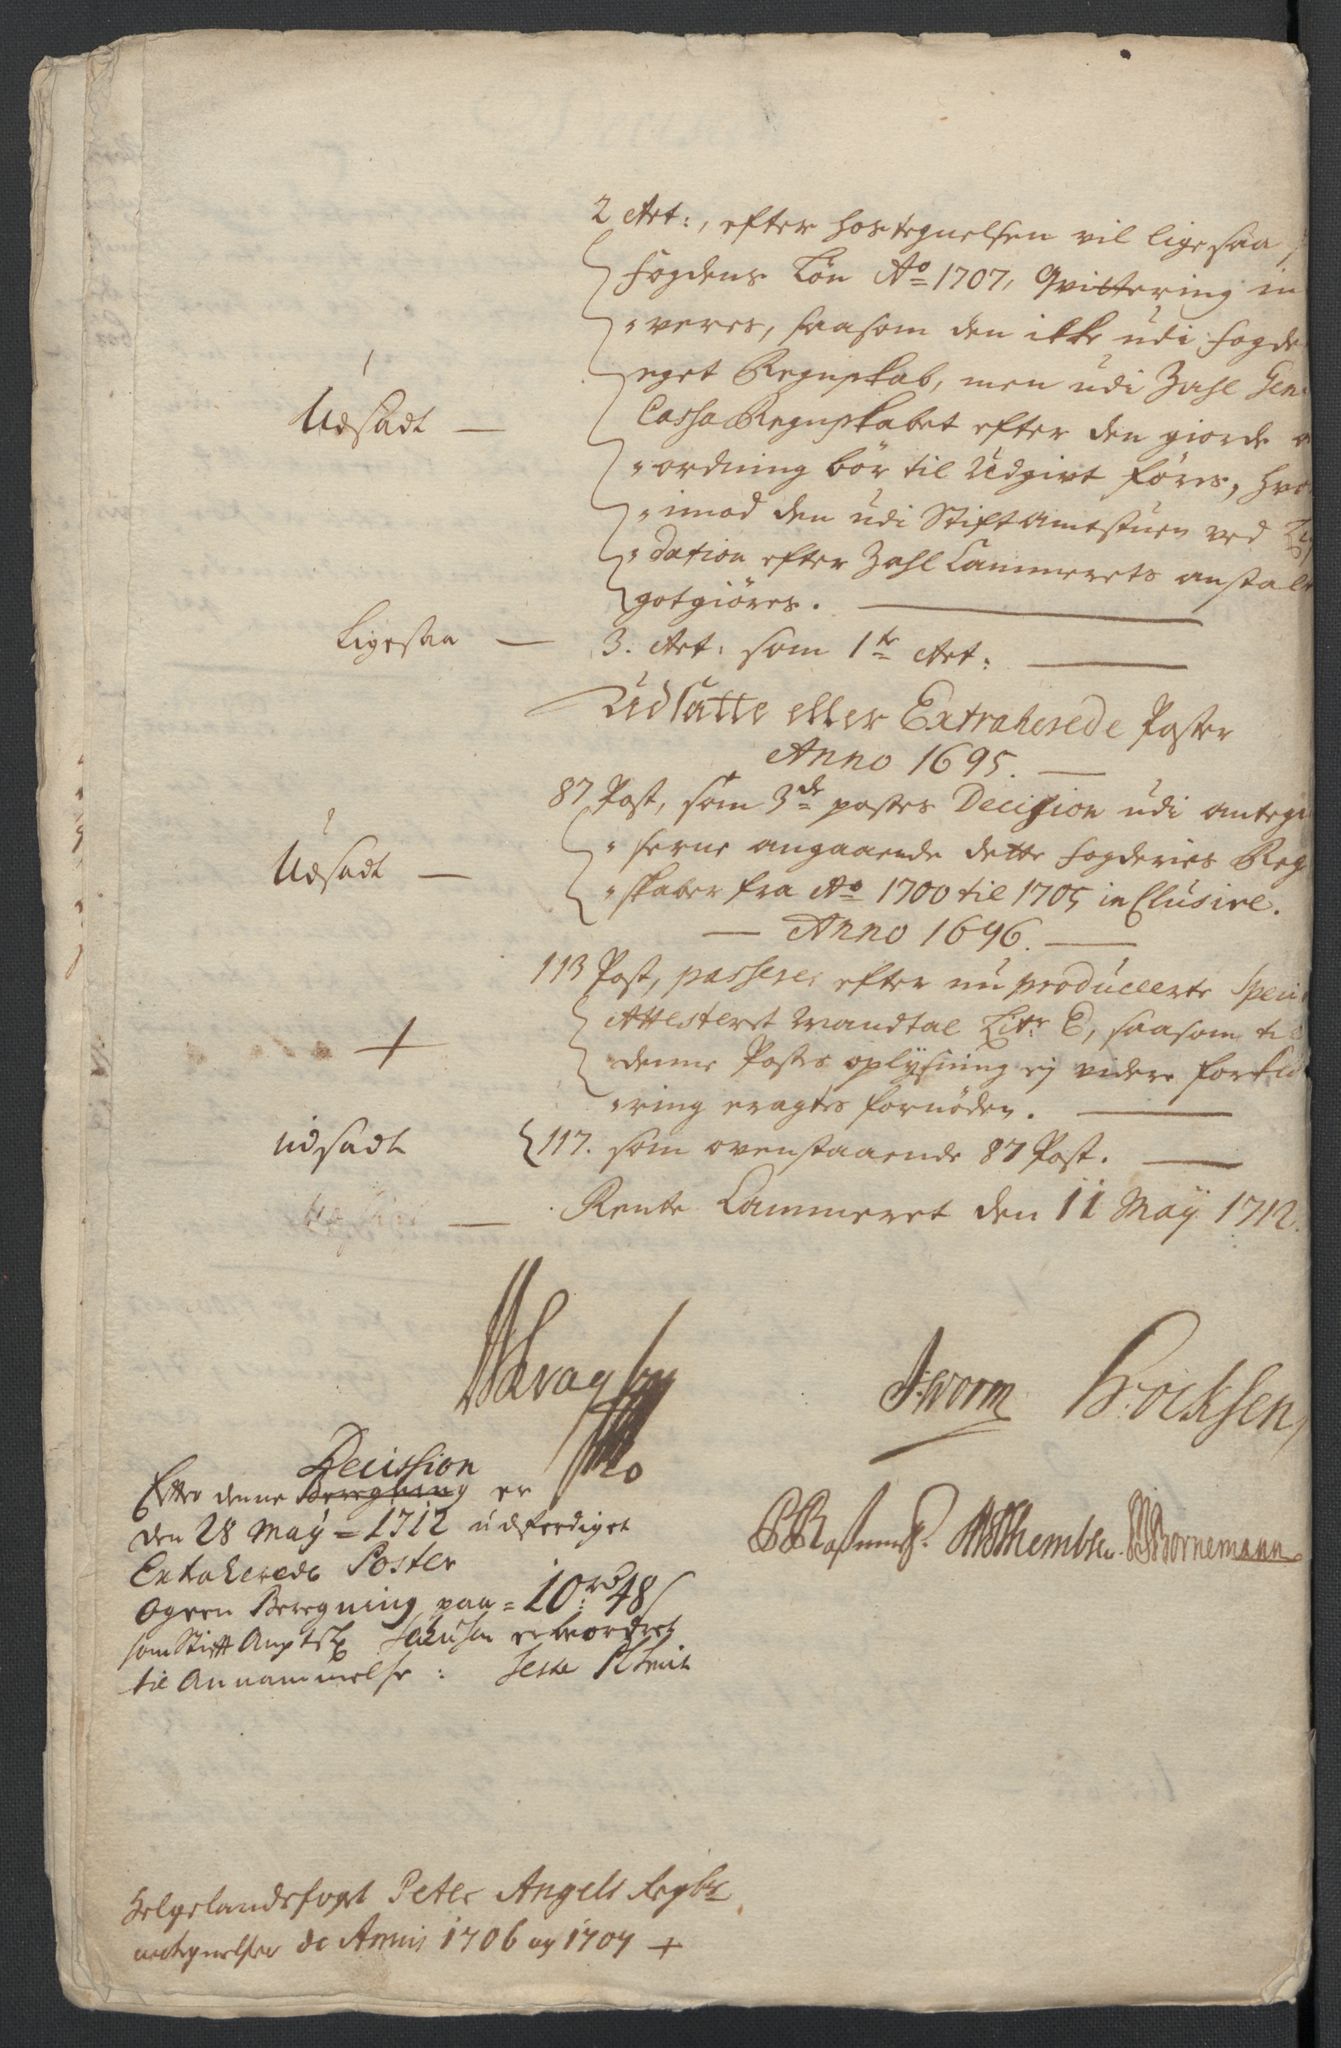 2 Art:, efter hostegnelsen vil ligesaa
fogdens Løn Ao 1707, Qvittering in
veres, saasom den ikke udi fogde
eget Regnskab, men udi Zahl Gen
Udsadt — Cassa Regnskabet efter den giorde
ordning bør til Udgivt føres, hvo
imod den udi Stiftamtstuen ved
dation efter Zahl Cammerets anstalt
gotgiøres.
Ligesaa — 3. Art: som 1te Art:
Udsatte eller Extraherede Poster
Anno 1695.
87 Post, som 3de postes Decision udi antegn
Udsadt — serne angaaende dette fogderies Reg
skaber fra Ao 1700 til 1705 inclusive.
— Anno 1696. —
113 Post, passerer efter nu producerte Speci
Attesteret Mandtal Litr E, saasom til
+ denne Postes oplysning ej videre forkla
ring eragtes fornøden.
udsadt 117. som ovenstaaende 87 Post.
Rente Cammeret den 11 Maÿ 1712.
J. Worm
Decission
Efter denne Beregning er
den 28 Maÿ = 1712 udferdiget
Extraherede Poster
Og een Beregning paa = 10 rd 48 s
som Stift Amptsk er beordret
til Annammelse :
WThembsen. Bornemann
Helgelandsfogt Peter Angels Regsk
antegnelser de Annis 1706 og 1707 +